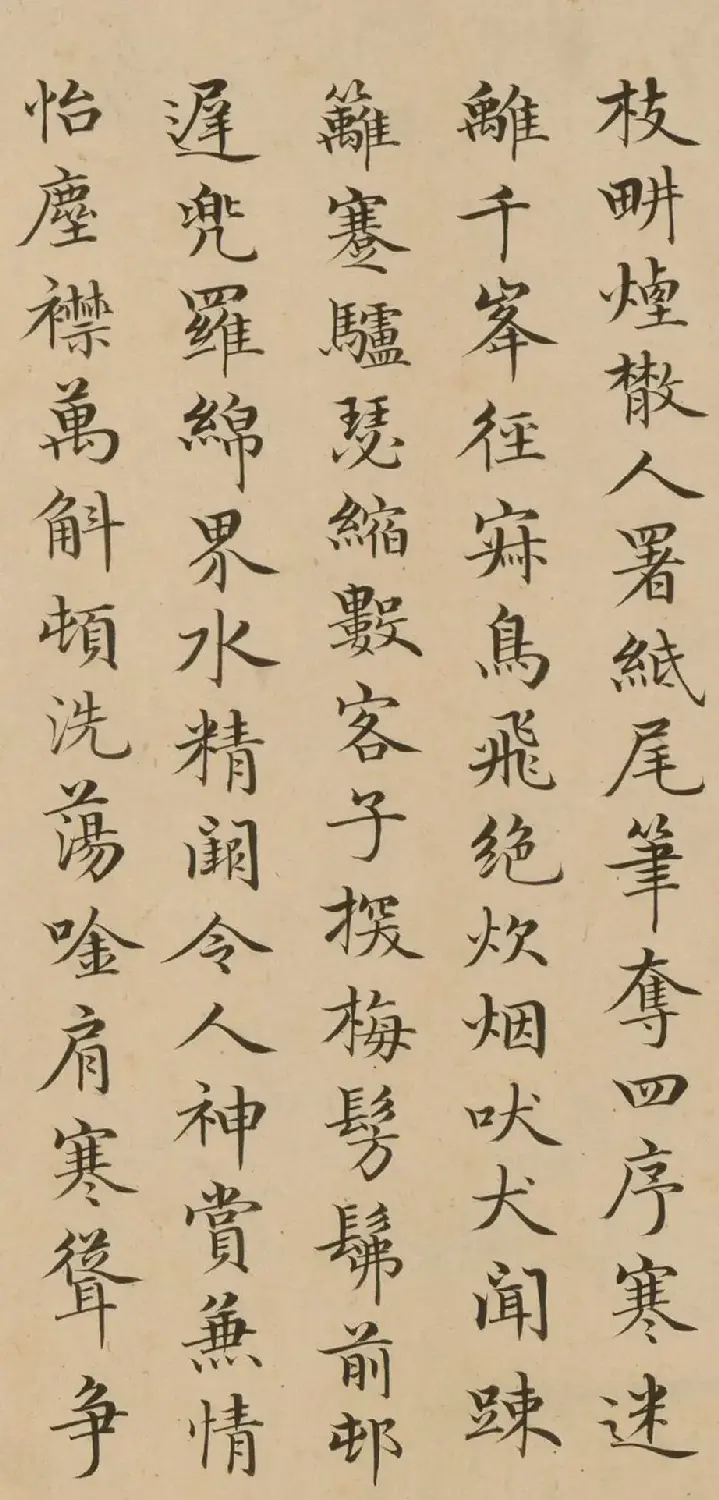 枝畊煙散人署紙尾筆奪四序寒迷
離千峯徑寂鳥飛絕炊烟吠犬聞疎
籬蹇驢瑟縮數客子探梅髣髴前邨
遲兜羅綿界水精閣令人神賞兼情
怡塵襟萬斛頓洗蕩唫肩寒聳爭